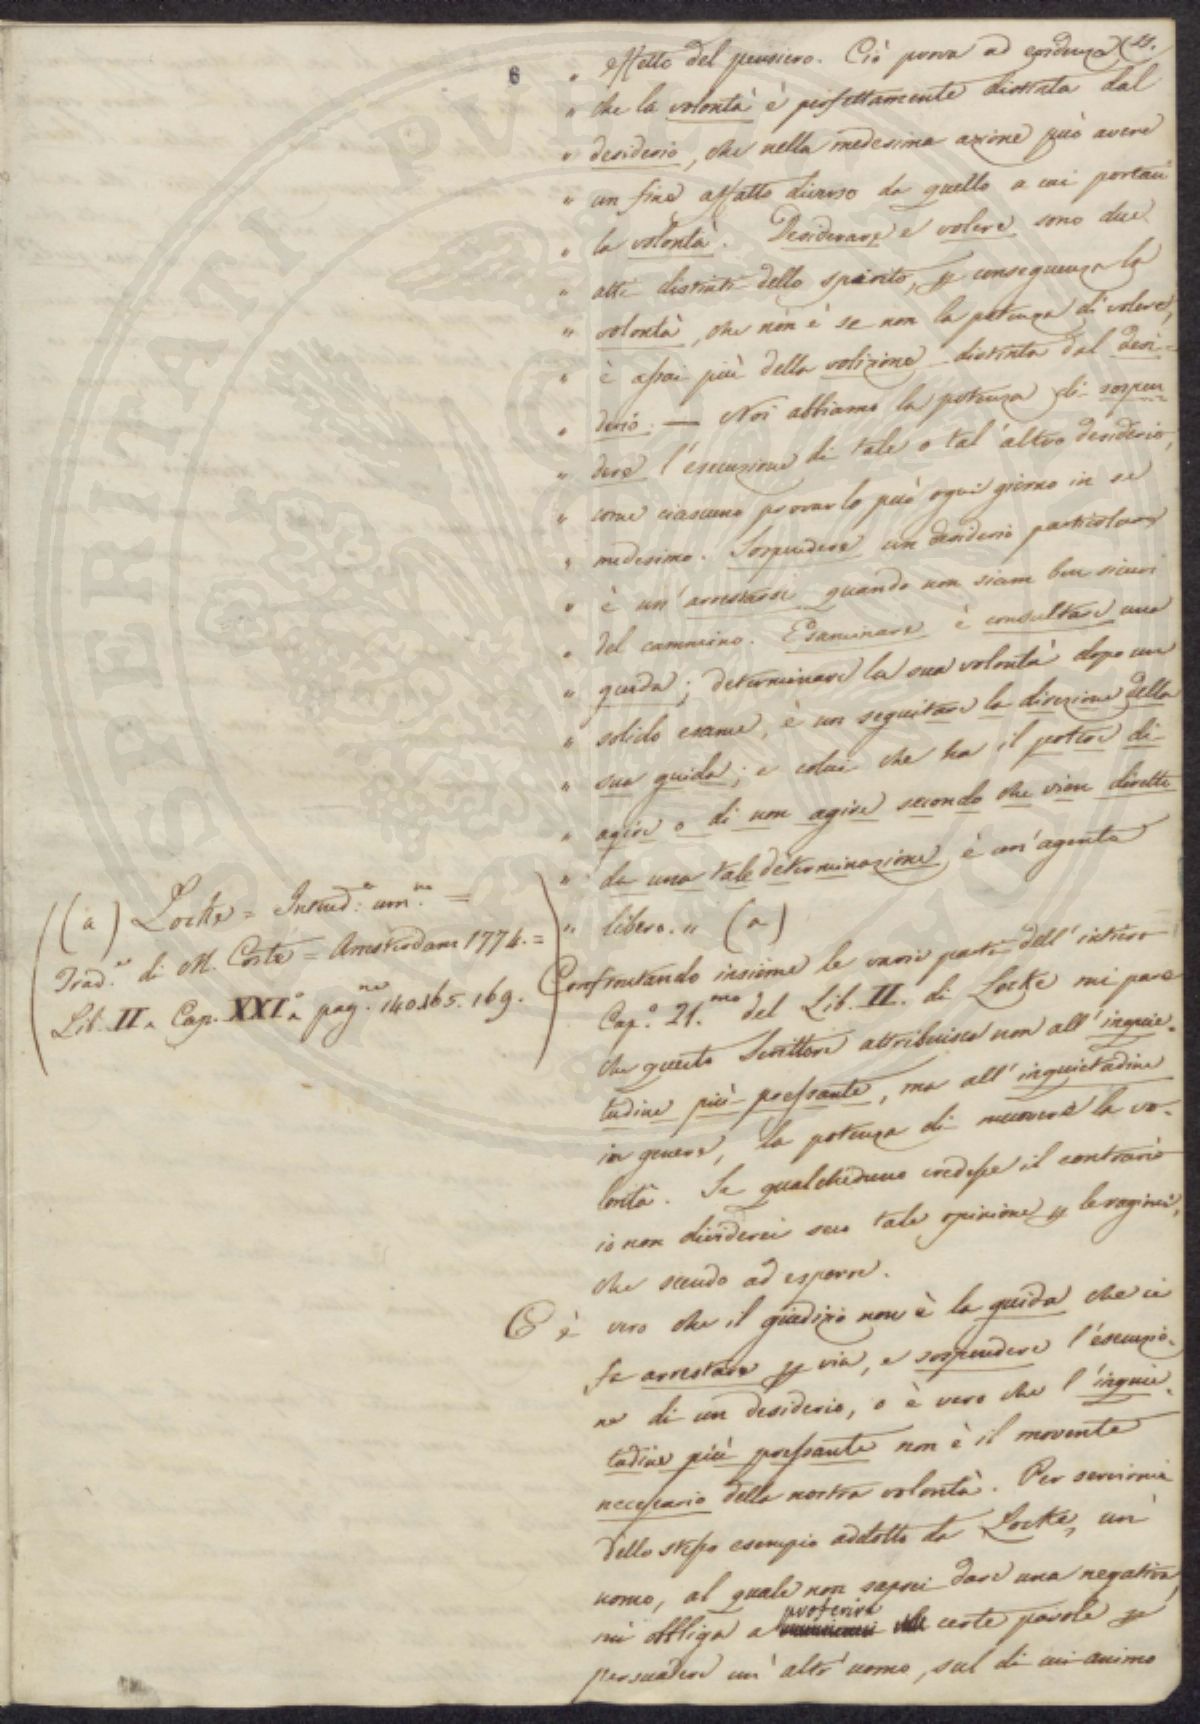 6
" effetto del pensiero. Ciò prova ad evidenza,
" che la volontà è perfettamente distinta dal
" desiderio, che nella medesima azione può avere
" un fine affatto diverso da quello a cui portasi
" la volontà. Desiderare e volere sono due
" atti distinti dello spirito, p conseguenza la
" volontà, che non è se non la potenza di volere,
" è assai più della volizione distinta dal desi-
" derio. — Noi abbiamo la potenza di sospen
" dere l'esecuzione di tale o tal'altro desiderio,
" come ciascuno provarlo può ogni giorno in se
" medesimo. Sospendere un desiderio particolare
" è un'arrestarsi quando non siam ben sicuri
" del cammino. Esaminare è consultare una
" guida; determinare la sua volontà dopo un
" solido esame, è un seguitare la direzione della
" sua guida; e colui che ha il potere di
" agire o di non agire secondo che vien diretto
" da una tale determinazione, è un'agente
" libero. " (a)
(a) Locke = Intend.º um.no =
Trad.e di M. Coste = Amsterdam 1774. =
Lib. II. Cap. XXI.º pag.ne 140. 165. 169.
Confrontando insieme le varie parti dell'intiero
Cap.º 21.mo del Lib. II. di Locke mi pare
che questo Scrittore attribuisca non all'inquie-
tudine più pressante, ma all'inquietudine
in genere, la potenza di muovere la vo-
lontà. Se qualcheduno credesse il contrario
io non dividerei seco tale opinione p le ragioni,
che scendo ad esporre.
O è vero che il giudizio non è la guida che ci
fa arrestare p via, e sospendere l'esecuzio-
ne di un desiderio, o è vero che l'inquie-
tudine più pressante non è il movente
necessario della nostra volontà. Per servirmi
dello stesso esempio addotto da Locke, un'
uomo, al quale non saprei dare una negativa,
mi obbliga a proferire certe parole p
persuadere un'altr'uomo, sul di cui animo